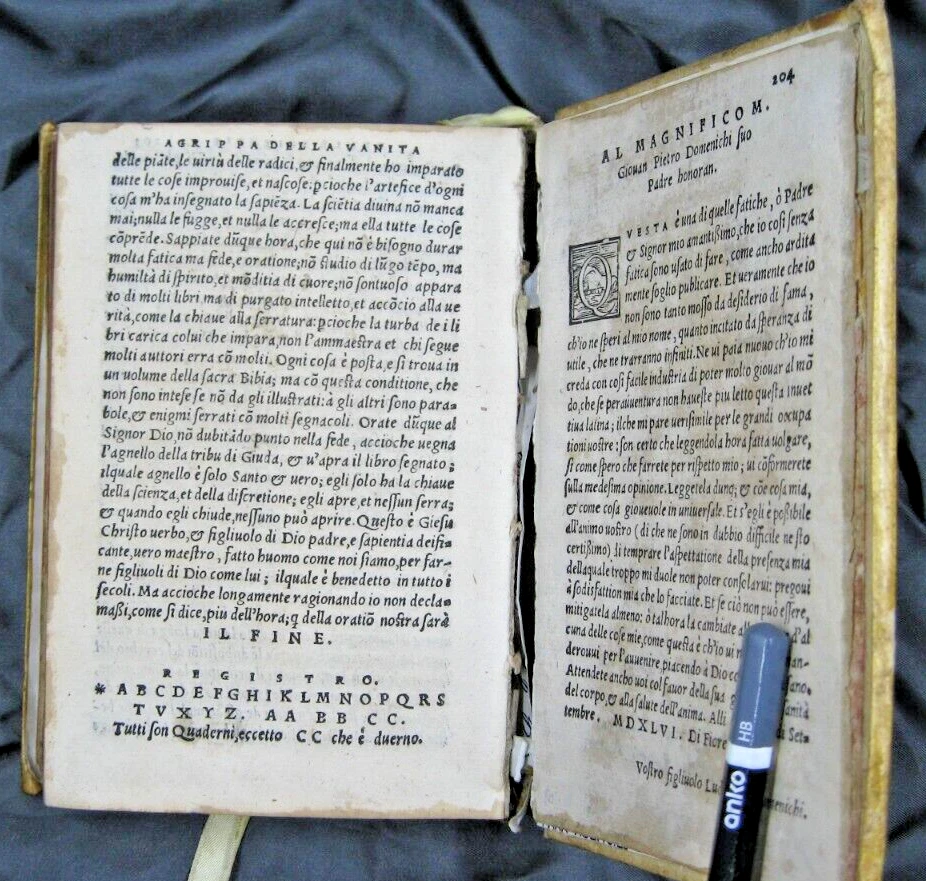 AGRIPPA DELLA VANITA
delle piãte, le uirtù delle radici, & finalmente ho imparato
tutte le cose improuise, et nascose: pcioche l'artefice d'ogni
cosa m'ha insegnato la sapiẽza. La sciẽtia diuina nõ manca
mai; nulla le fugge, et nulla le accresce; ma ella tutte le cose
cõprẽde. Sappiate dũque hora, che qui nõ è bisogno durar
molta fatica ma fede, e oratione; nõ studio di lũgo tẽpo, ma
humiltà di spirito, et mõditia di cuore; nõ sontuoso appara
to di molti libri, ma di purgato intelletto, et accõcio alla ue
rità, come la chiaue alla serratura: pcioche la turba de i li
bri carica colui che impara, non l'ammaestra et chi segue
molti auttori erra cõ molti. Ogni cosa è posta, e si troua in
un volume della sacra Bibia; ma cõ questa conditione, che
non sono intese se nõ da gli illustrati: à gli altri sono para=
bole, & enigmi serrati cõ molti segnacoli. Orate dũque al
Signor Dio, nõ dubitãdo punto nella fede, accioche uegna
l'agnello della tribu di Giuda, & u'apra il libro segnato;
ilquale agnello è solo Santo & uero; egli solo ha la chiaue
della scienza, et della discretione; egli apre, et nessun serra;
& quando egli chiude, nessuno può aprire. Questo è Giesu
Christo uerbo, & figliuolo di Dio padre, e sapientia deifi=
cante, uero maestro, fatto huomo come noi siamo, per far=
ne figliuoli di Dio come lui; ilquale è benedetto in tutto i
secoli. Ma accioche longamente ragionando io non decla=
massi, come si dice, piu dell'hora; q della oratiõ nostra sarà
IL FINE.
REGISTRO.
* A B C D E F G H I K L M N O P Q R S
T V X Y Z. AA BB CC.
Tutti son Quaderni, eccetto CC che è duerno.
204
AL MAGNIFICO M.
Giouan Pietro Domenichi suo
Padre honoran.
QVESTA è una di quelle fatiche, ò Padre
& Signor mio amantissimo, che io così senza
fatica sono usato di fare, come ancho ardita
mente soglio publicare. Et ueramente che io
non sono tanto mosso da desiderio di fama,
ch'io ne speri al mio nome, quanto incitato da speranza di
utile, che ne trarranno infiniti. Ne ui paia nuouo ch'io mi
creda con così facile industria di poter molto giouar al mõ
do, che se perauuentura non haueste piu letto questa inuet
tiua latina; ilche mi pare uerisimile per le grandi occupa
tioni uostre; son certo che leggendola hora fatta uolgare,
si come spero che farrete per rispetto mio; ui cõformerete
sulla medesima opinione. Leggetela dunq; & cõe cosa mia,
& come cosa gioueuole in uniuersale. Et s'egli è possibile
all'animo uostro (di che ne sono in dubbio difficile ne sto
certissimo) di temprare l'aspettatione della presenza mia
dellaquale troppo mi duole non poter consolarui: pregoui
à sodisfattion mia che lo facciate. Et se ciò non può essere,
mitigatela almeno: ò talhora la cambiate d'al
cuna delle cose mie, come questa è ch'io ui
derouui per l'auuenire, piacendo à Dio
Attendete ancho uoi col fauor della sua
del corpo, & alla salute dell'anima. Alli di Set=
tembre. MDXLVI. Di
Vostro figliuolo
HB
anko